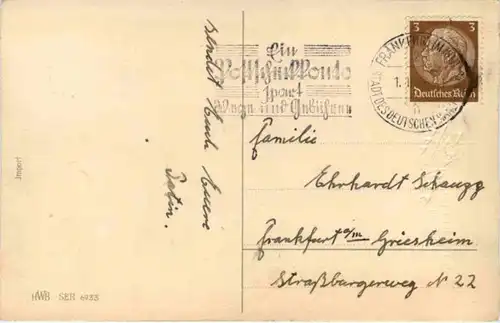 sendet Euch Euere
Patin.
Import
HWB SER
Ein
Postscheckkonto
spart
Wege und Gebühren
FRANKFURT
STADT DES DEUTSCHEN
3 3
Deutsches Reich
Familie
Ehrhardt Schaupp
Frankfurt a/m Griesheim
Straßburgerweg № 22